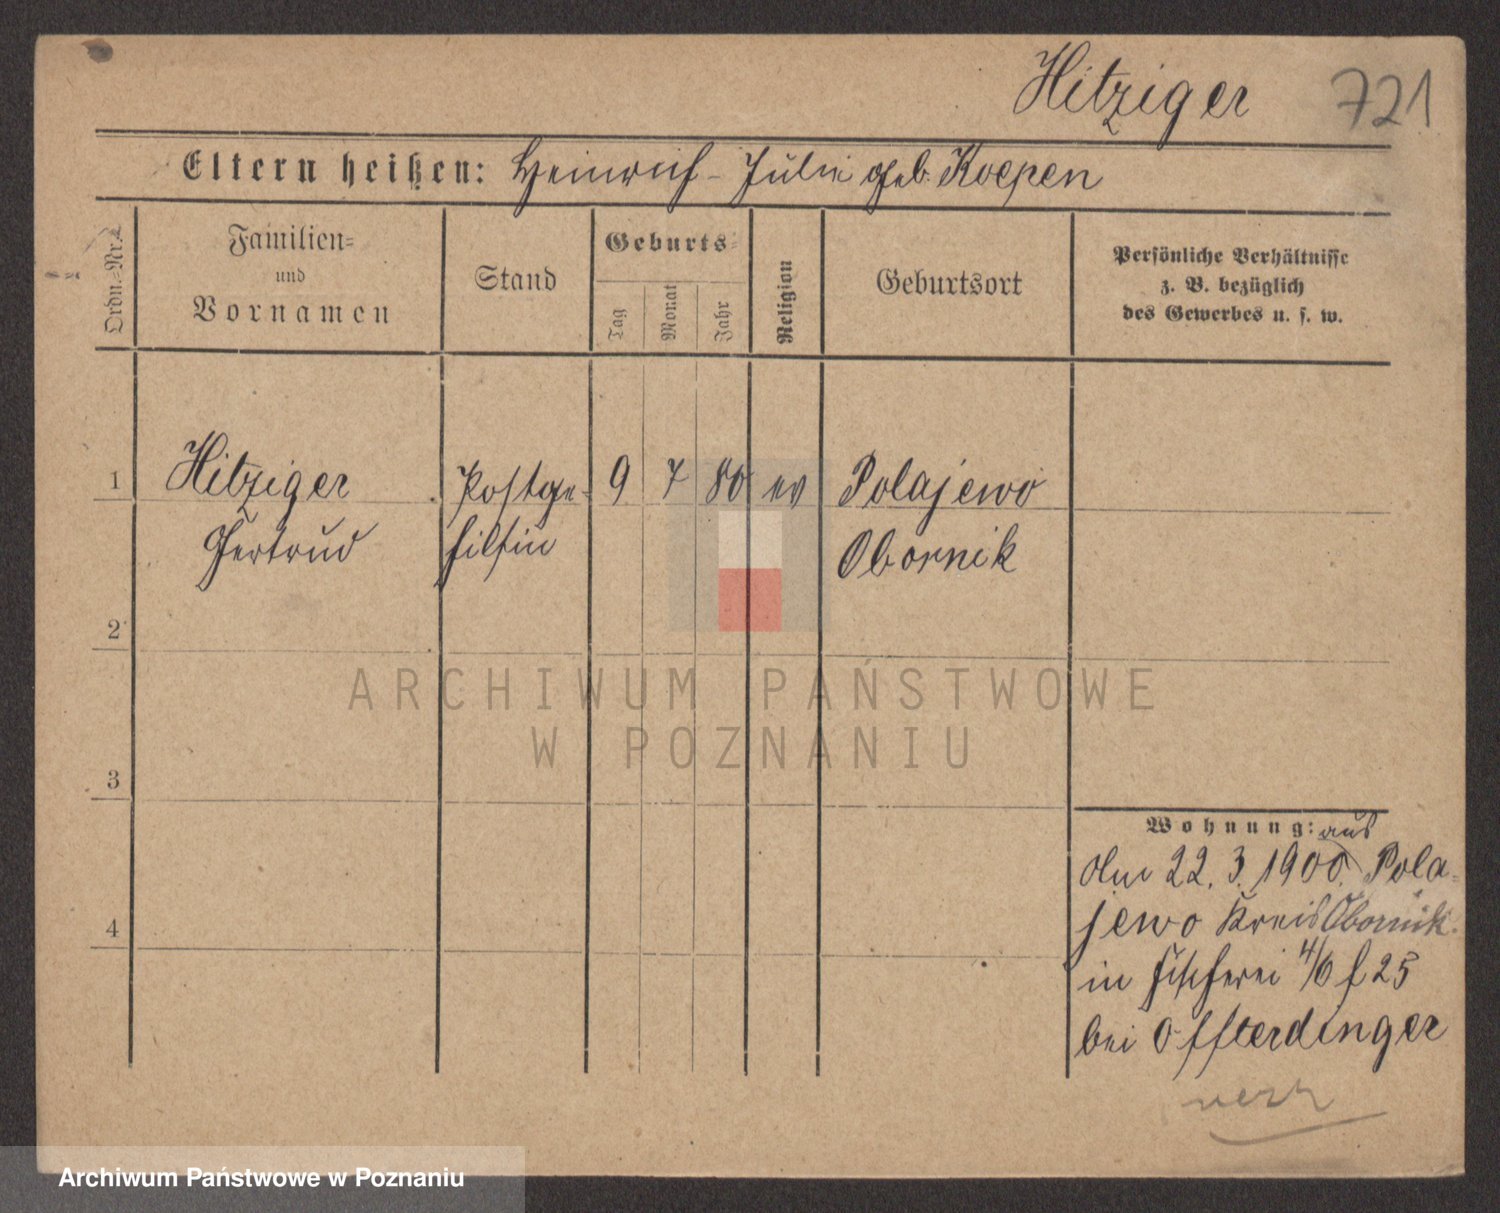 Hitziger 721
Eltern heißen: Heinrich - Julie geb. Koepen
Ordn.-Nr.
Familien-
und
Vornamen
Stand
Geburts-
Tag
Monat
Jahr
Religion
Geburtsort
Persönliche Verhältnisse
z. B. bezüglich
des Gewerbes u. s. w.
1 Hitziger Postge- 9 7 80 ev Polajewo
Gertrud hilfin Obornik
2
3
4
Wohnung: aus
22. 3. 1900. Pola-
jewo Kreis Obornik.
in Fischerei 4/6 f 25
bei Offterdinger
verz
ARCHIWUM PAŃSTWOWE
W POZNANIU
Archiwum Państwowe w Poznaniu